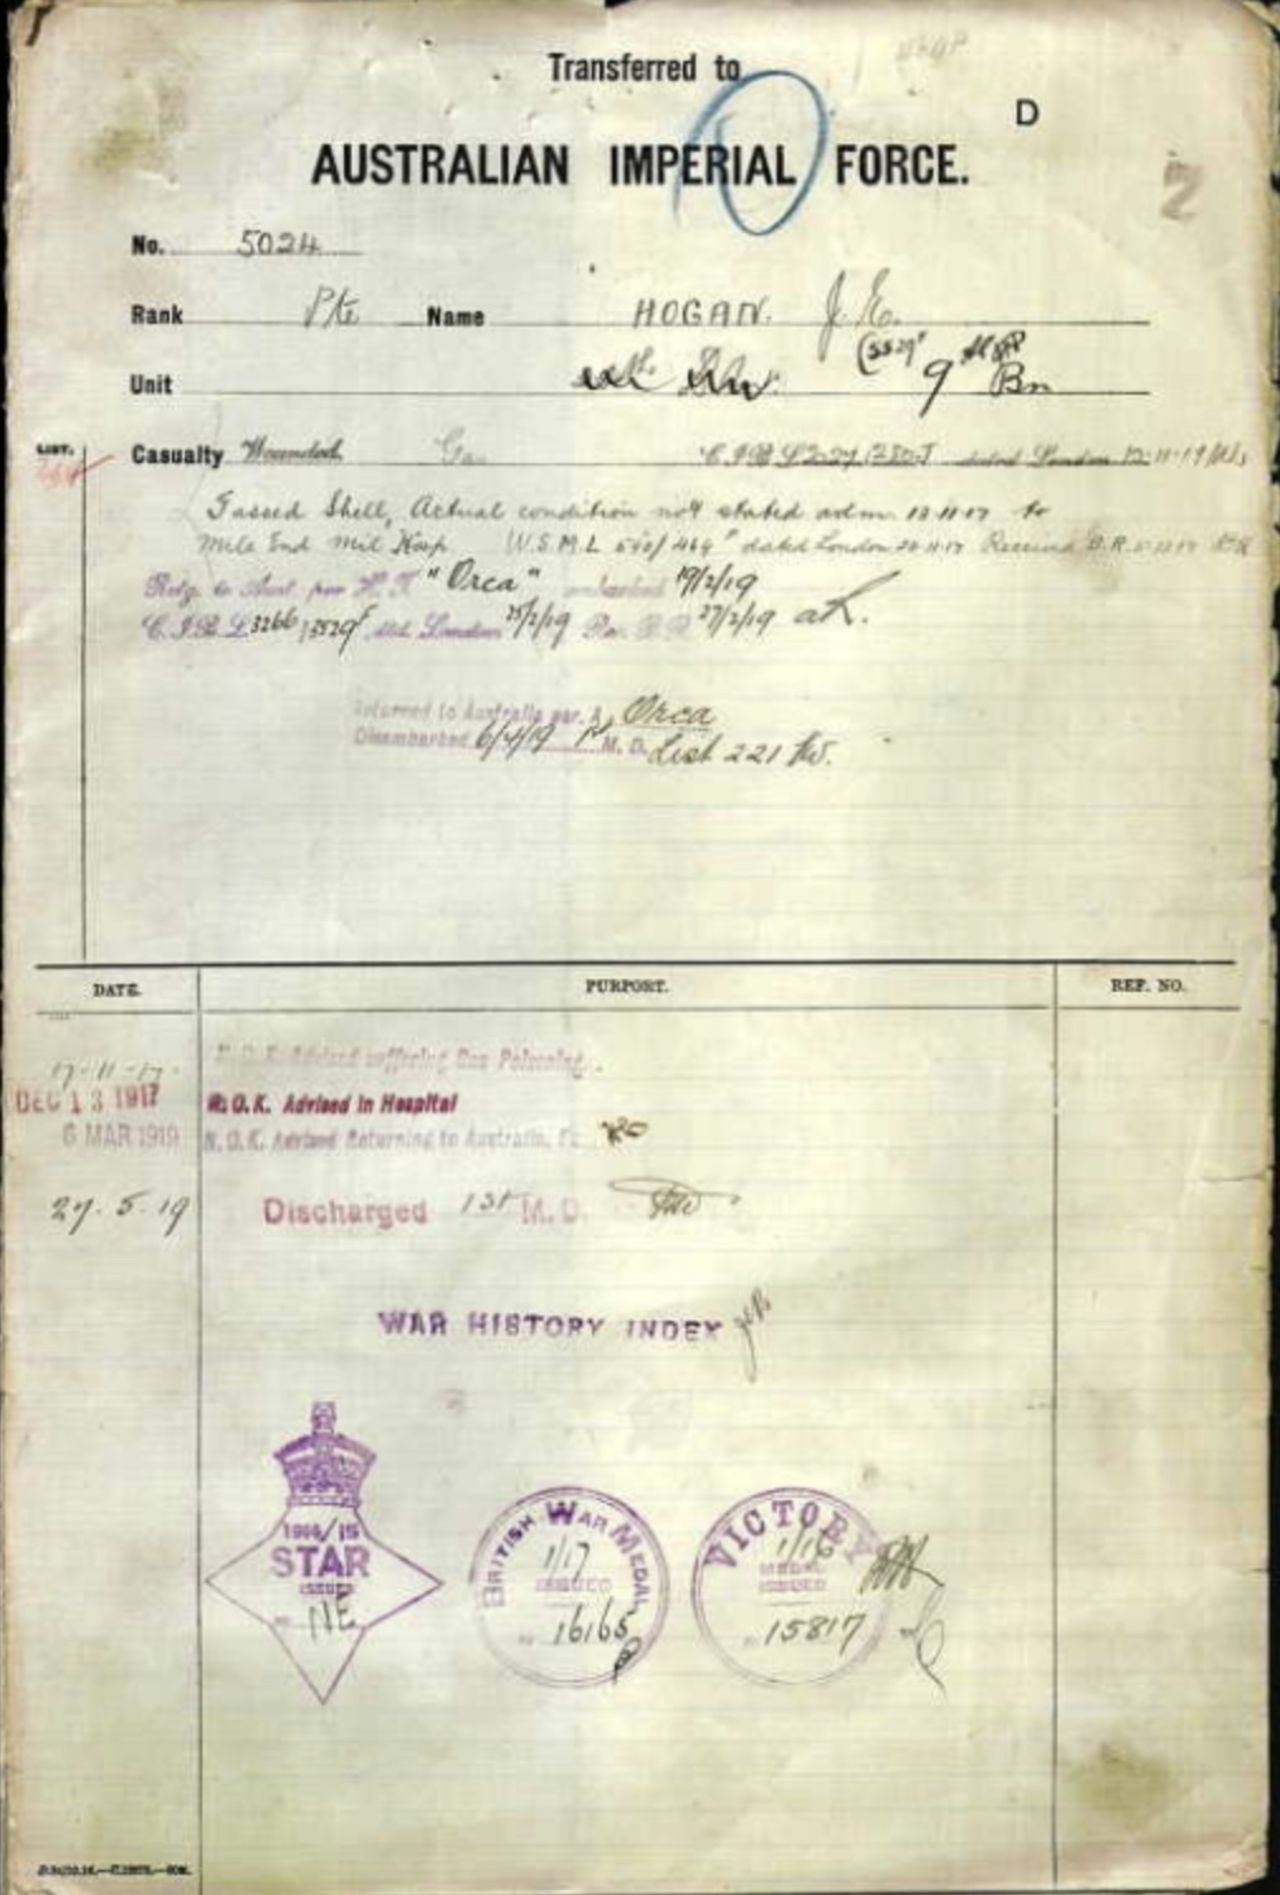 Transferred to
D
AUSTRALIAN IMPERIAL FORCE.
2
No. 5024
Rank Pte Name HOGAN. J. E.
Unit 9th Bn
LIST.
Casualty Wounded Gas dated London
Gassed Shell, Actual condition not stated adm. to
Mile End Mil Hosp W.S.M.L dated London Received B.R.
Retg. to Aust. per H.T. "Orca" embarked 19/2/19
C.I.B.L 3266 London 25/2/19 27/2/19
Returned to Australia per. Orca
Disembarked 6/4/19 1st M.D. List 221
DATE. PURPORT. REF. NO.
17-11-17 N.O.K. Advised suffering Gas Poisoning.
DEC 13 1917 N.O.K. Advised in Hospital
6 MAR 1919 N.O.K. Advised Returning to Australia,
27.5.19 Discharged 1st M.D.
WAR HISTORY INDEX
1914/15
STAR
ISSUED
NE
BRITISH WAR MEDAL
1/17
ISSUED
16165
VICTORY
1/16
MEDAL
ISSUED
15817